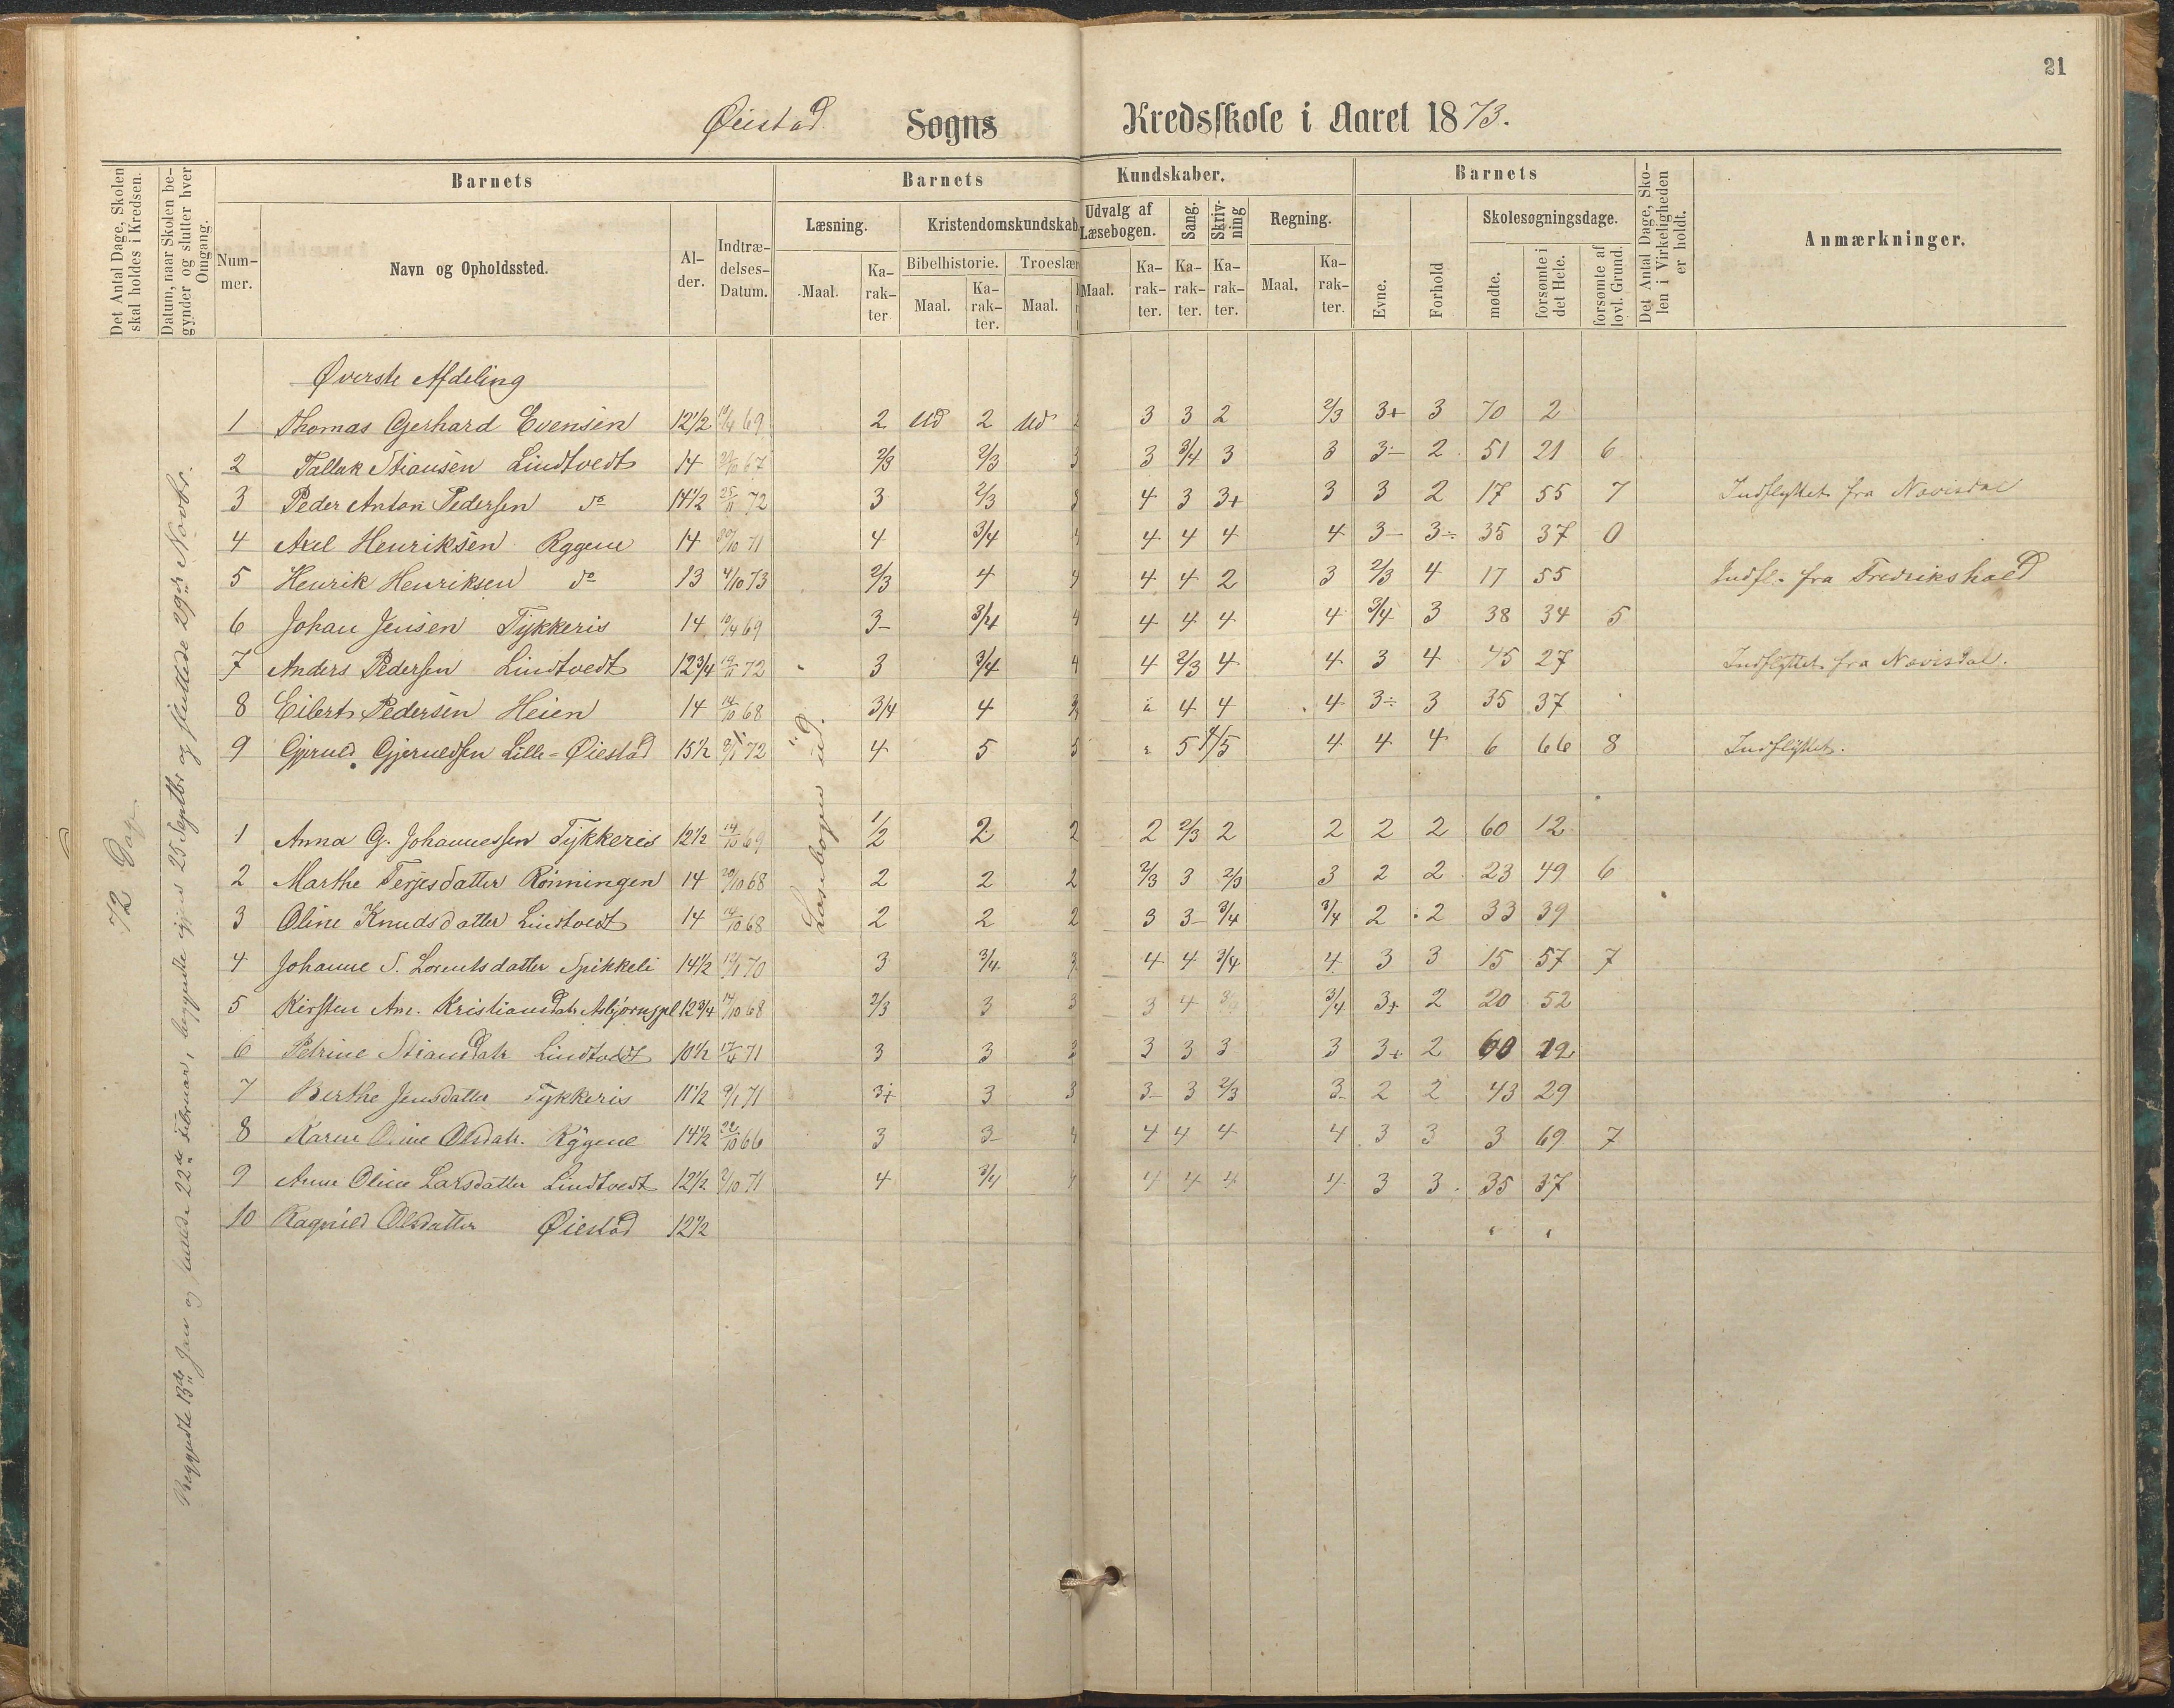 21
Øiestad Sogns Kredsskole i Aaret 1873.
Det Antal Dage, Skolen skal holdes i Kredsen.
Datum, naar Skolen begynder og slutter hver Omgang.
Barnets
Nummer.
Navn og Opholdssted.
Alder.
Indtrædelses-Datum.
Barnets Kundskaber.
Læsning.
Maal.
Karakter
Kristendomskundskab
Bibelhistorie.
Maal.
Karakter.
Troeslær
Maal.
Udvalg af Læsebogen.
Maal.
Karakter.
Sang.
Karakter.
Skrivning
Karakter.
Regning.
Maal.
Karakter.
Barnets
Evne.
Forhold
Skolesøgningsdage.
mødte.
forsømte i det Hele.
forsømte af lovl. Grund.
Det Antal Dage, Skolen i Virkeligheden er holdt.
Anmærkninger.
72 Dag
Begyndte 13de Jan og sluttede 22de Februar, begyndte igjen 25 Septbr og sluttede 29de Novbr.
Læsebogen ud.
Øverste Afdeling
1 Thomas Gerhard Evensen 12½ 19/4 69 2 Ud 2 Ud 2 3 3 2 2/3 3+ 3 70 2
2 Tallak Stiansen Lindtvedt 14 67 2/3 2/3 3 3 3/4 3 3 3- 2 51 21 6
3 Peder Anton Pedersen do 14½ 25/11 72 3 2/3 3 4 3 3+ 3 3 2 17 55 7 Indflyttet fra Novisdal
4 Axel Henriksen Rygene 14 20/10 71 4 3/4 4 4 4 4 4 3- 3÷ 35 37 0
5 Henrik Henriksen do 13 4/10 73 2/3 4 4 4 4 2 3 2/3 4 17 55 Indfl. fra Fredrikshald
6 Johan Jensen Tykkeris 14 19/4 69 3- 3/4 4 4 4 4 4 3/4 3 38 34 5
7 Anders Pedersen Lindtvedt 12¾ 19/11 72 3 3/4 4 4 2/3 4 4 3 4 45 27 Indflyttet fra Novisdal.
8 Eilert Pedersen Heien 14 14/10 68 3/4 4 4 4 4 3÷ 3 35 37
9 Gjeruld Gjeruldsen Lille-Øiestad 15½ 72 4 5 5 5 4/5 4 4 4 6 66 8 Indflyttet.
1 Anna G. Johannessen Tykkeris 12½ 14/10 69 1/2 2 2 2 2/3 2 2 2 2 60 12
2 Marthe Terjesdatter Rønningen 14 20/10 68 2 2 2 2/3 3 2/3 3 2 2 23 49 6
3 Oline Knudsdatter Lindtvedt 14 14/10 68 2 2 2 3 3- 3/4 3/4 2 2 33 39
4 Johanne S. Lorentsdatter Spikkeli 14½ 70 3 3/4 3 4 4 3/4 4 3 3 15 57 7
5 Kirsten Ane. Kristiansdatr Asbjørnspl 12¾ 14/10 68 2/3 3 3 3 4 3/4 3+ 2 20 52
6 Petrine Stiansdatr Lindtvedt 10½ 71 3 3 3 3 3 3 3 3+ 2 60 12
7 Berthe Jensdatter Tykkeris 11½ 9/1 71 3+ 3 3 3- 3 2/3 3- 2 2 43 29
8 Karen Oline Olsdatr. Rygene 14½ 22/10 66 3 3- 4 4 4 4 4 3 3 3 69 7
9 Anne Oline Larsdatter Lindtvedt 12½ 2/10 71 4 3/4 4 4 4 4 4 3 3 35 37
10 Ragnild Olsdatter Øiestad 12½